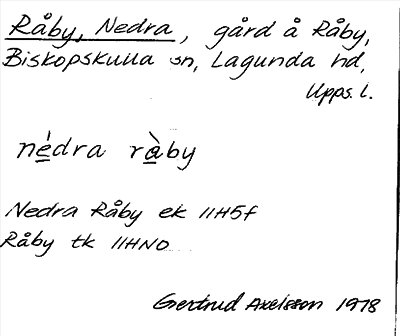 Råby, Nedra, gård å Råby,
Biskopskulla sn, Lagunda hd,
Upps. l.
nédra ràby
Nedra Råby ek 11H5f
Råby tk 11HNO
Gertrud Axelsson 1978